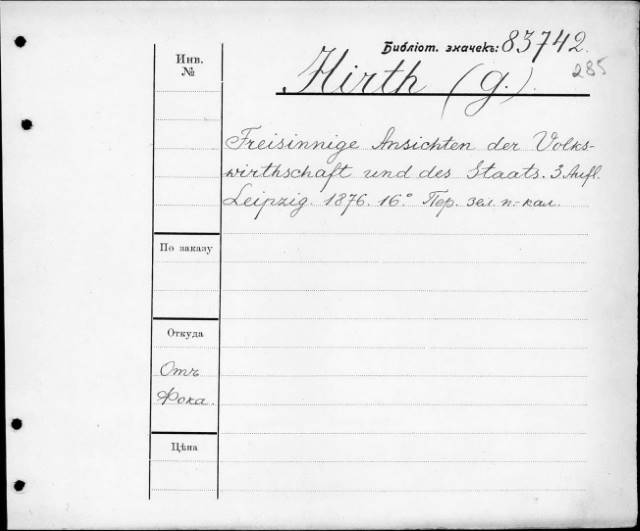 Библіот. значекъ: 83742.
285
Hirth (G.).
Инв.
№
Freisinnige Ansichten der Volks-
wirthschaft und des Staats. 3 Aufl.
Leipzig. 1876. 16° Пер. зел. п.-кал.
По заказу
Откуда
Отъ
Фока.
Цѣна